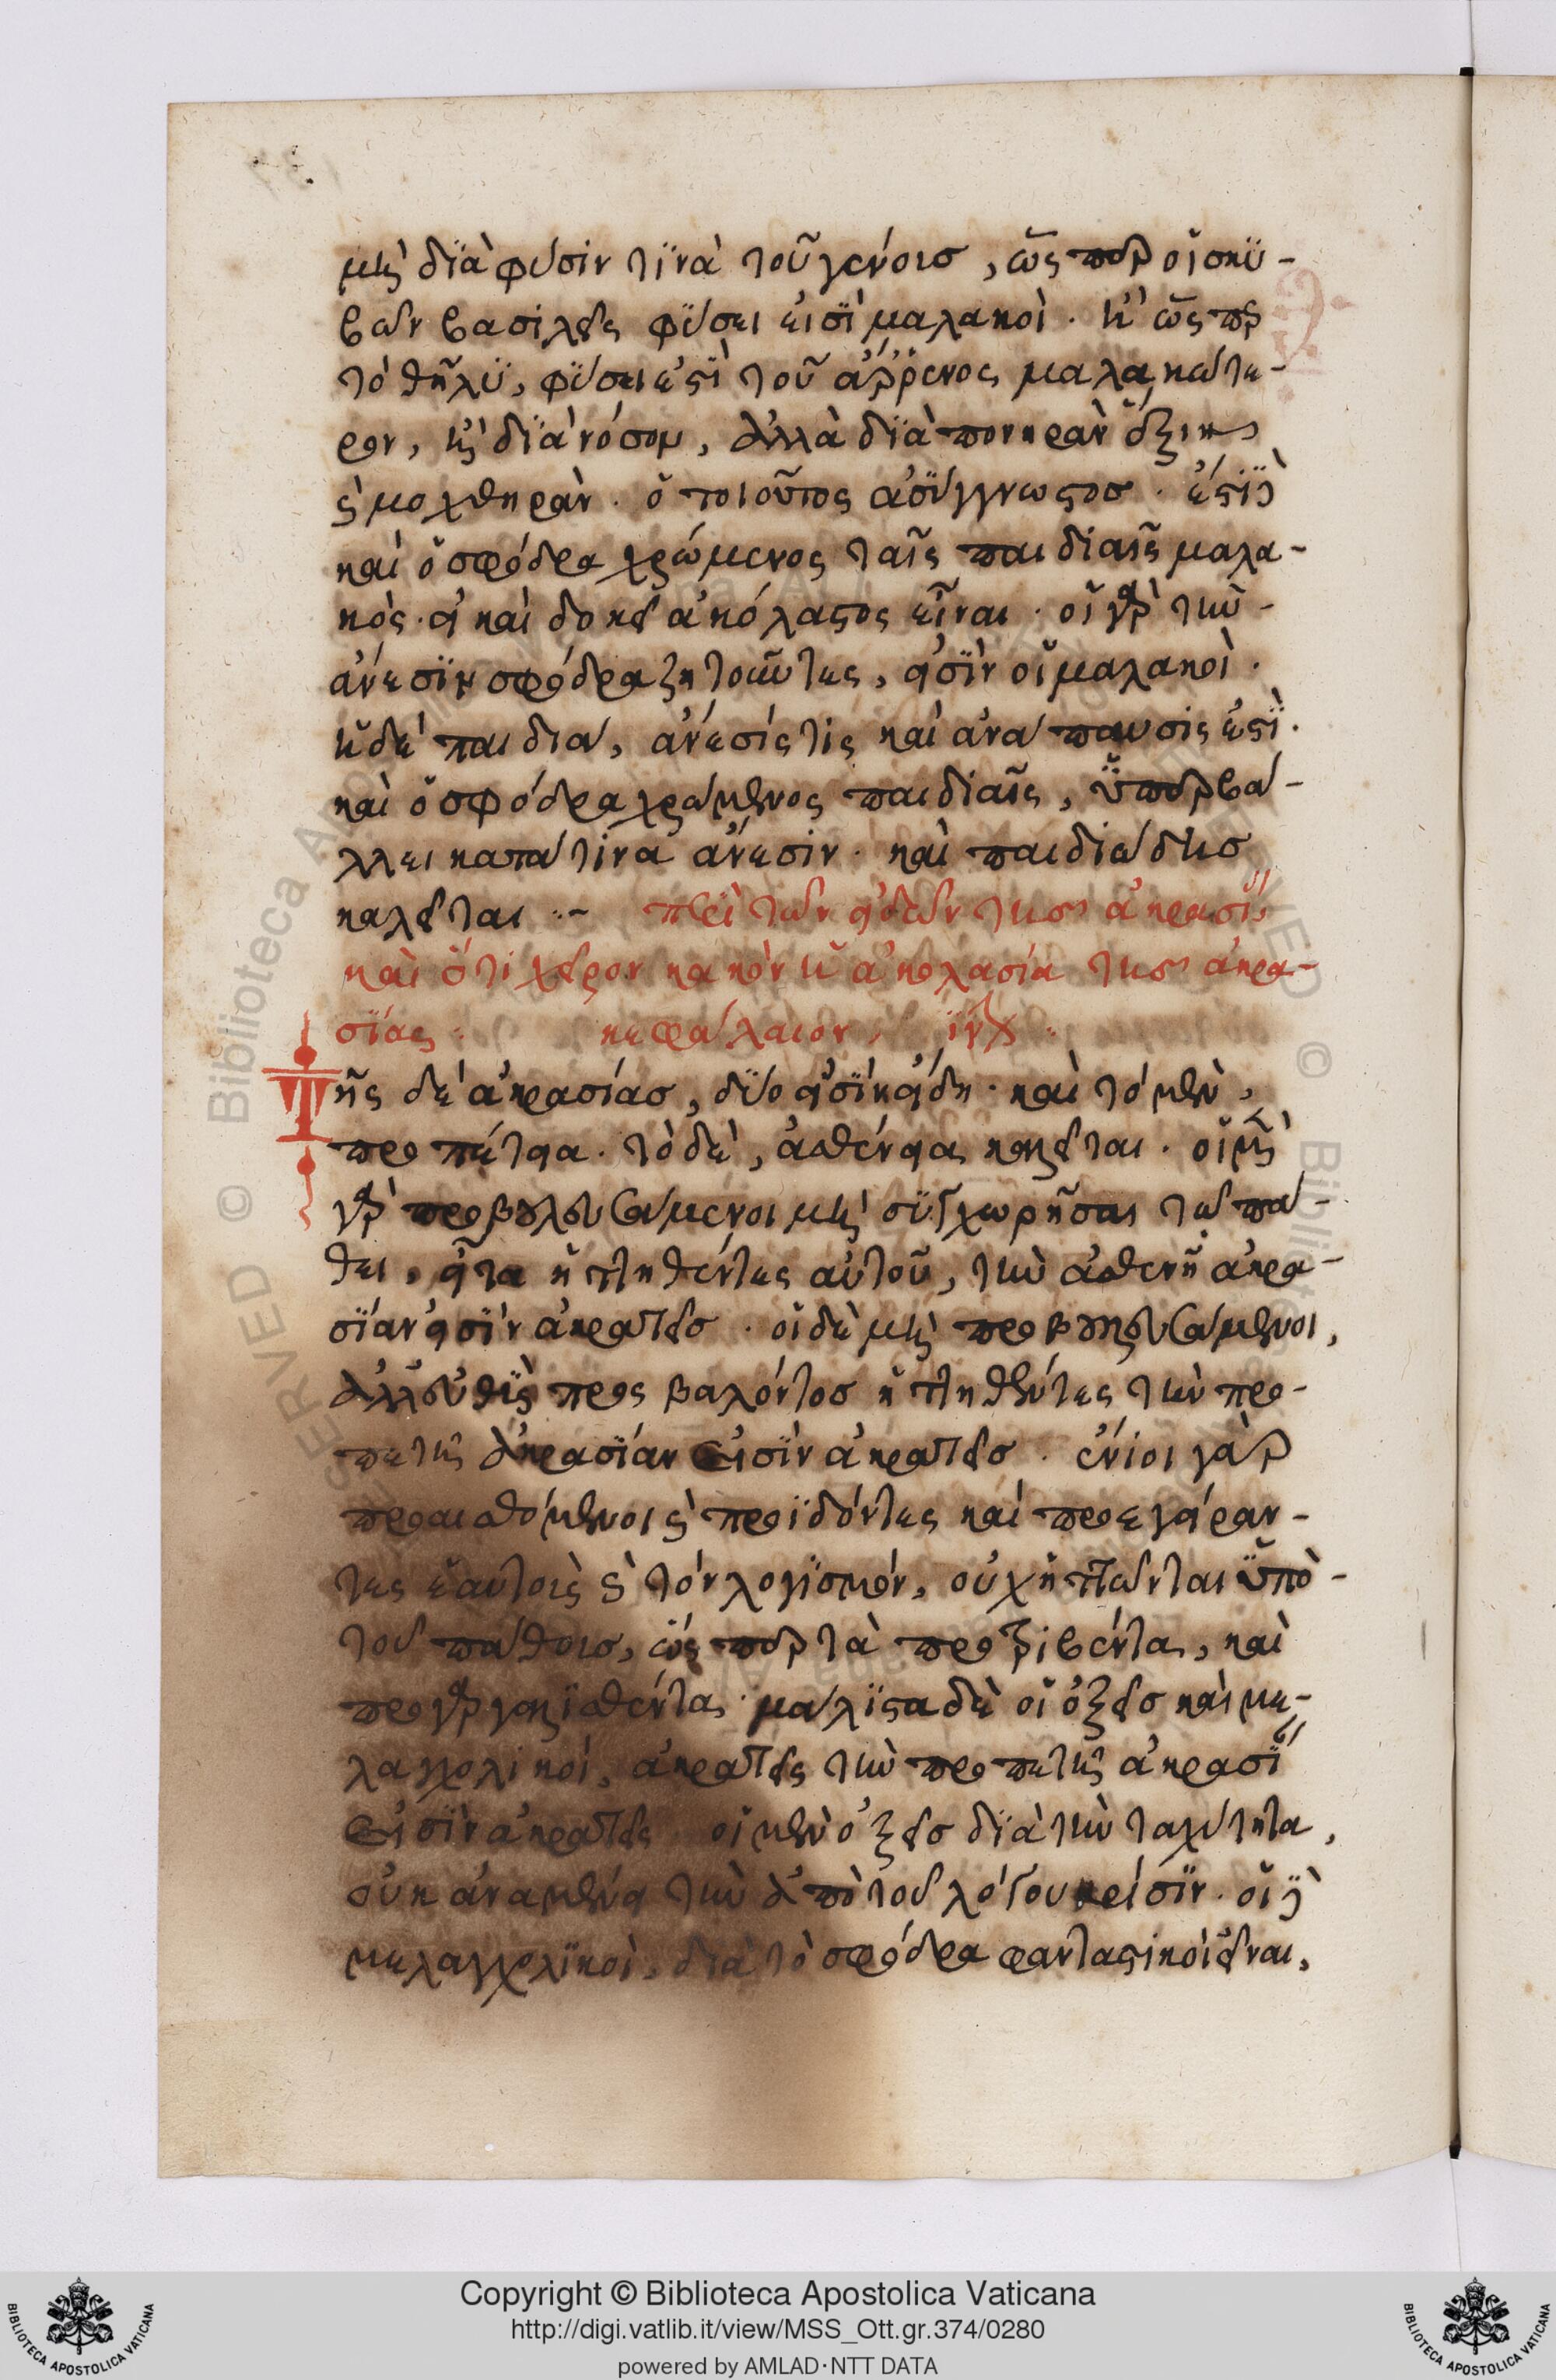 μὴ διὰ φύσιν τινὰ τοῦ γένους, ὥσπερ οἱ σκυ-
θῶν βασιλεῖς φύσει εἰσὶ μαλακοὶ. ἢ ὥσπερ
τὸ θῆλυ, φύσει ἐστὶ τοῦ ἄρρενος μαλακώτε-
ρον, ἢ διὰ νόσον, ἀλλὰ διὰ πονηρὰν ἕξιν
καὶ μοχθηρὰν. ὁ τοιοῦτος ἀσύγγνωστος. ἔστι δὲ
καὶ ὁ σφόδρα χρώμενος ταῖς παιδίαις μαλα-
κὸς. εἰ καὶ δοκεῖ ἀκόλαστος εἶναι. οἱ γὰρ τὴν
ἄνεσιν σφόδρα ζητοῦντες, εἰσὶν οἱ μαλακοὶ.
ἡ δὲ παιδιά, ἄνεσίς τις καὶ ἀνάπαυσις ἐστὶ.
καὶ ὁ σφόδρα χρώμενος παιδίαις, ὑπερβά-
λλει κατά τινα ἄνεσιν. καὶ παιδιώδης
καλεῖται :- περὶ τῶν εἰδῶν τῆς ἀκρασίας,
καὶ ὅτι χεῖρον κακὸν ἡ ἀκολασία τῆς ἀκρα-
σίας. κεφάλαιον,
Τῆς δὲ ἀκρασίας, δύο εἰσὶν εἴδη. καὶ τὸ μὲν,
προπέτεια. τὸ δὲ, ἀσθένεια καλεῖται. οἱ μὲν
γὰρ προβουλευσάμενοι μὴ συγχωρῆσαι τῷ πά-
θει, εἶτα ἡττηθέντες αὐτοῦ, τὴν ἀσθενῆ ἀκρα-
σίαν εἰσὶν ἀκρατεῖς. οἱ δὲ μὴ προβουλευσάμενοι,
ἀλλ' εὐθὺς προσβαλόντος ἡττηθέντες τὴν προ-
πετῆ ἀκρασίαν εἰσὶν ἀκρατεῖς. ἔνιοι γὰρ
προαισθόμενοι καὶ προϊδόντες καὶ προεγείραν-
τες ἑαυτοὺς καὶ τὸν λογισμόν, οὐχ ἡττῶνται ὑπὸ
τοῦ πάθους, ὥσπερ τὰ προτριβέντα, καὶ
προγαργαλισθέντα. μάλιστα δὲ οἱ ὀξεῖς καὶ με-
λαγχολικοὶ, ἀκρατεῖς τὴν προπετῆ ἀκρασίαν
εἰσὶν ἀκρατεῖς. οἱ μὲν ὀξεῖς διὰ τὴν ταχύτητα,
οὐκ ἀναμένει τὴν ἀπὸ τοῦ λόγου κρίσιν. οἱ δὲ
μελαγχολικοὶ, διὰ τὸ σφόδρα φανταστικοὶ εἶναι,
Copyright © Biblioteca Apostolica Vaticana
http://digi.vatlib.it/view/MSS_Ott.gr.374/0280
powered by AMLAD·NTT DATA
BIBLIOTECA APOSTOLICA VATICANA
BIBLIOTECA APOSTOLICA VATICANA